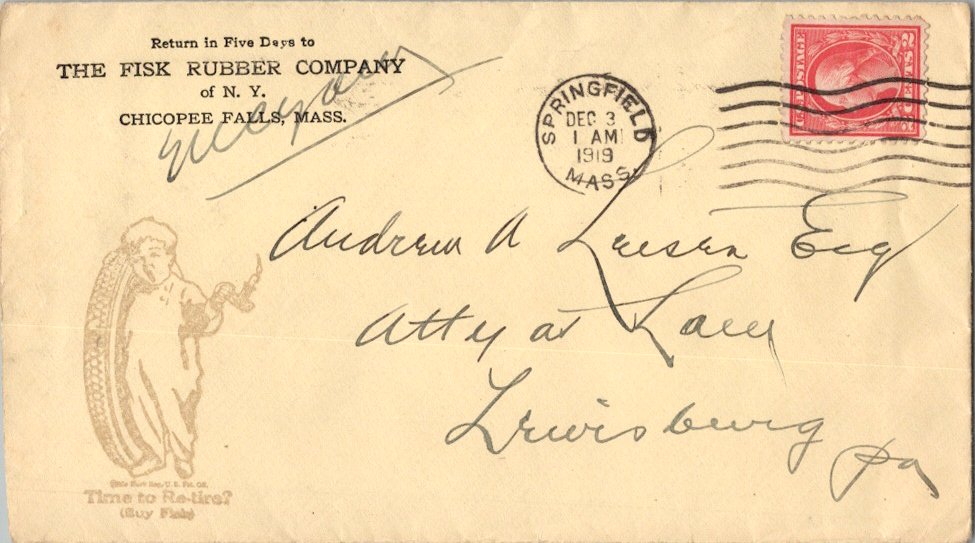 Return in Five Days to
THE FISK RUBBER COMPANY
of N. Y.
CHICOPEE FALLS, MASS.
SPRINGFIELD
DEC 3
1 AM
1919
MASS.
U.S. POSTAGE
2 CENTS 2
Andrew A Leiser Esq
Atty at Law
Lewisburg
Pa
Time to Re-tire?
(Buy Fisk)